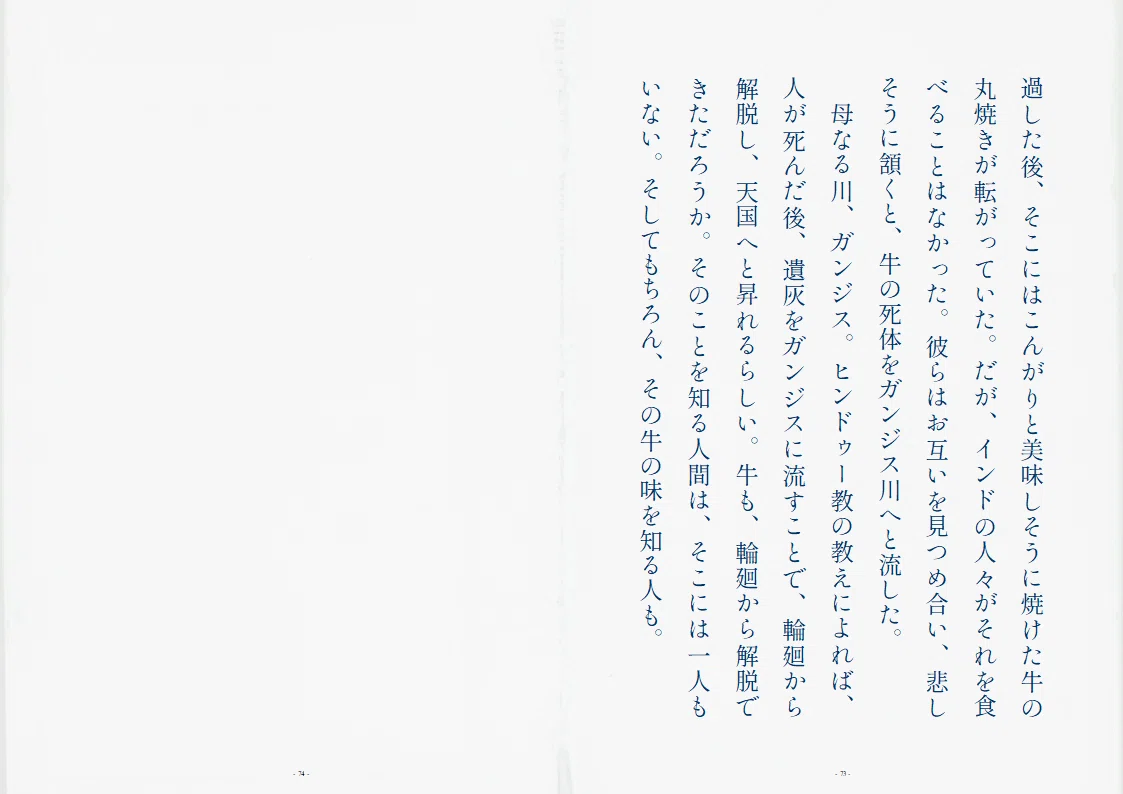 過した後、そこにはこんがりと美味しそうに焼けた牛の
丸焼きが転がっていた。だが、インドの人々がそれを食
べることはなかった。彼らはお互いを見つめ合い、悲し
そうに頷くと、牛の死体をガンジス川へと流した。
母なる川、ガンジス。ヒンドゥー教の教えによれば、
人が死んだ後、遺灰をガンジスに流すことで、輪廻から
解脱し、天国へと昇れるらしい。牛も、輪廻から解脱で
きただろうか。そのことを知る人間は、そこには一人も
いない。そしてもちろん、その牛の味を知る人も。
- 73 -
- 74 -